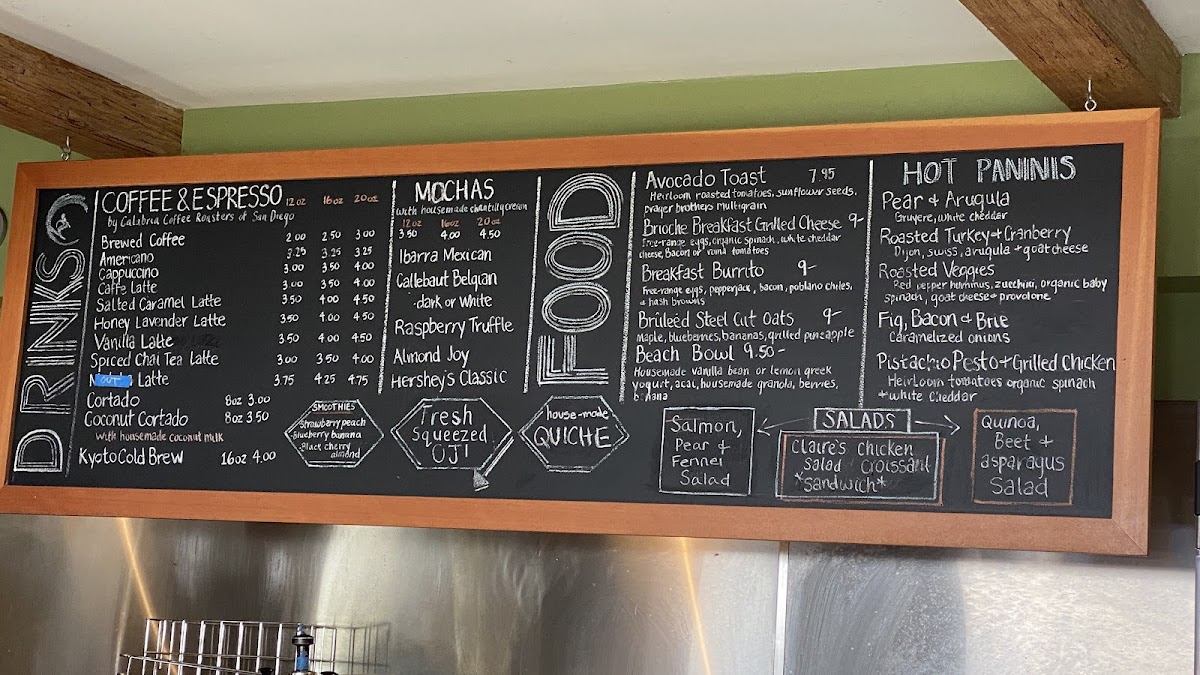 DRINKS
COFFEE & ESPRESSO 12oz 16oz 20oz
by Calabria Coffee Roasters of San Diego
Brewed Coffee 2.00 2.50 3.00
Americano 3.25 3.25 3.25
Cappuccino 3.00 3.50 4.00
Caffe Latte 3.00 3.50 4.00
Salted Caramel Latte 3.50 4.00 4.50
Honey Lavender Latte 3.50 4.00 4.50
Vanilla Latte 3.50 4.00 4.50
Spiced Chai Tea Latte 3.00 3.50 4.00
OUT Latte 3.75 4.25 4.75
Cortado 8oz 3.00
Coconut Cortado 8oz 3.50
with housemade coconut milk
Kyoto Cold Brew 16oz 4.00
MOCHAS
with housemade chantilly cream
12oz 16oz 20oz
3.50 4.00 4.50
Ibarra Mexican
Callebaut Belgian
·dark or White
Raspberry Truffle
Almond Joy
Hershey's Classic
SMOOTHIES
Strawberry peach
Blueberry banana
Black cherry
almond
Fresh
Squeezed
"OJ"!
house-made
QUICHE
FOOD
Avocado Toast 7.95
Heirloom roasted tomatoes, sunflower seeds,
prager brothers multigrain
Brioche Breakfast Grilled Cheese 9-
free-range eggs, organic spinach, white cheddar
cheese, bacon or roma tomatoes
Breakfast Burrito 9-
Free-range eggs, pepperjack, bacon, poblano chiles,
+ hash browns
Brûléed Steel Cut Oats 9-
Maple, blueberries, bananas, grilled pineapple
Beach Bowl 9.50-
Housemade vanilla bean or lemon greek
yogurt, acai, housemade granola, berries,
banana
HOT PANINIS
Pear & Arugula
Gruyere, white cheddar
Roasted Turkey + Cranberry
Dijon, swiss, arugula + goat cheese
Roasted Veggies
Red pepper hummus, zucchini, organic baby
spinach, goat cheese + provolone
Fig, Bacon & Brie
Caramelized onions
Pistachio Pesto + Grilled Chicken
Heirloom tomatoes organic spinach
+ white Cheddar
SALADS
Salmon,
Pear +
Fennel
Salad
Claire's Chicken
Salad Croissant
*Sandwich*
Quinoa,
Beet +
asparagus
Salad